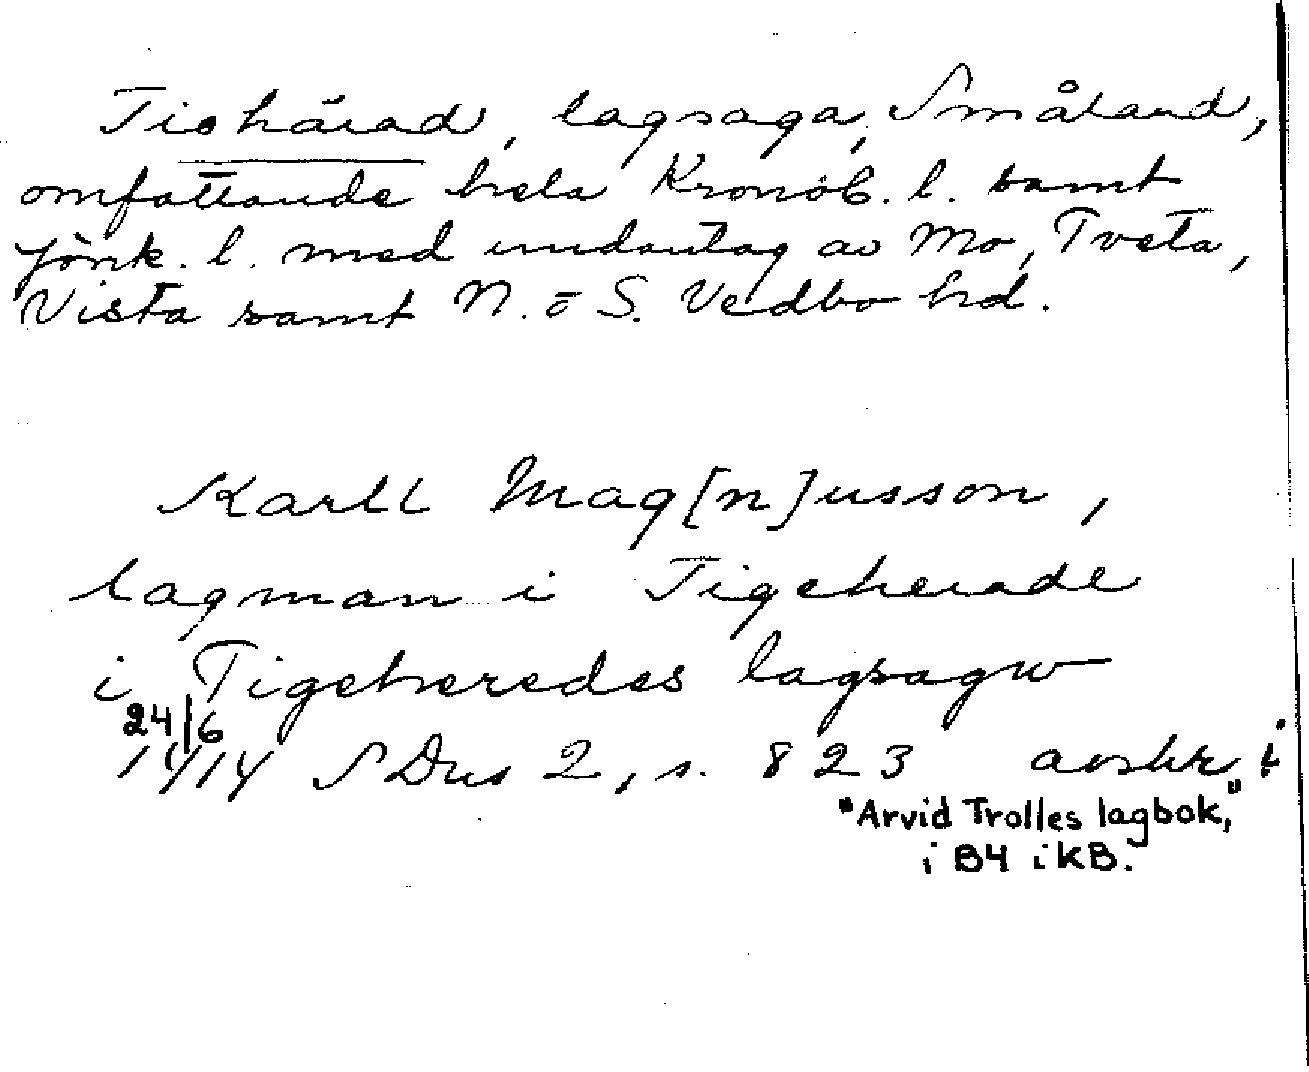 Tiohärad, lagsaga, Småland,
omfattande hela Kronob. l. samt
Jönk. l. med undantag av Mo, Tveta,
Vista samt N. o S. Vedbo hd.
Karll Mag[n]usson,
lagman i Tigeherade
i Tigeheredes lagsagw
24/6
1414 SDns 2, s. 823 avskr. i
"Arvid Trolles lagbok,"
i B4 i KB.